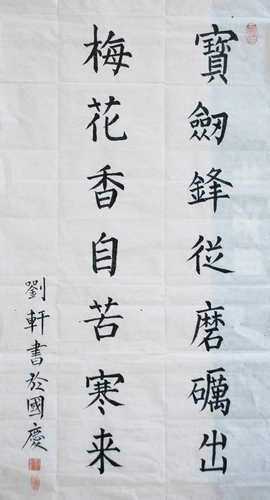 寶劒鋒從磨礪出
梅花香自苦寒来
劉軒書於國慶